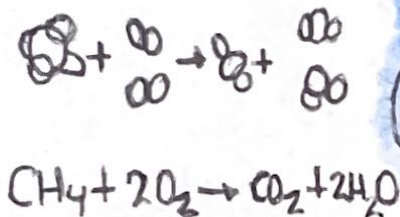 + → +
CH₄ + 2O₂ → CO₂ + 2H₂O